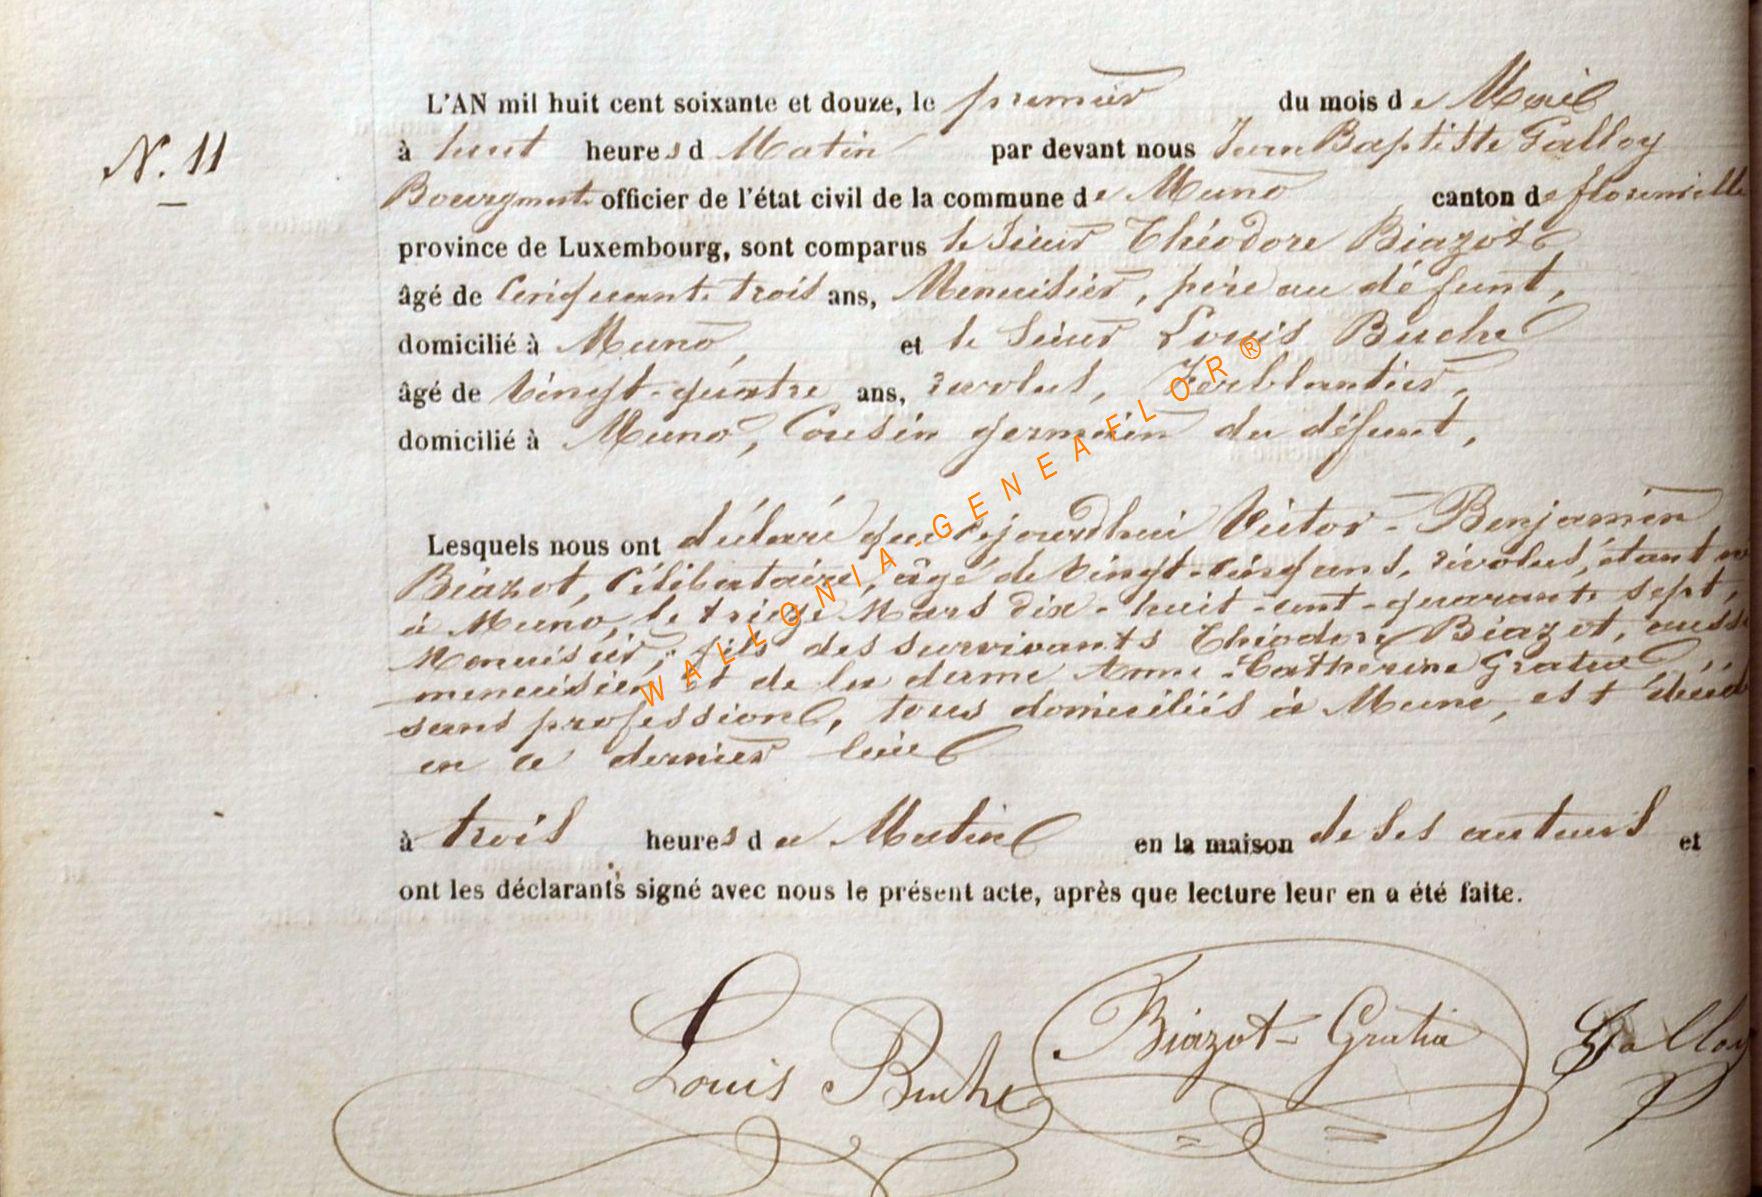 L'AN mil huit cent soixante et douze, le premier du mois de Mai
N. 11
à huit heures d Matin par devant nous Jean Baptiste Galloy
Bourgmestre officier de l'état civil de la commune de Muno canton de florenville
province de Luxembourg, sont comparus le Sieur Théodore Biazot
âgé de Cinquante trois ans, Menuisier, père au défunt,
domicilié à Muno, et le Sieur Louis Buche
âgé de Vingt-quatre ans, revolus, Ferblantier,
domicilié à Muno, Cousin germain du défunt,
Lesquels nous ont déclaré que cejourdhui Victor-Benjamin
Biazot, Célibataire, âgé de Vingt-cinq ans, révolus, étant né
à Muno, le treize Mars dix-huit-cent-quarante sept,
Menuisier, fils des survivants Théodore Biazot, aussi
menuisier et de la dame Anne-Catherine Gratia,
sans profession, tous domiciliés à Muno, est décédé
en ce dernier lieu
à trois heures du Matin en la maison de ses auteurs et
ont les déclarants signé avec nous le présent acte, après que lecture leur en a été faite.
Louis Buche Biazot-Gratia Galloy
WALLONIA-GENEAFLOR®